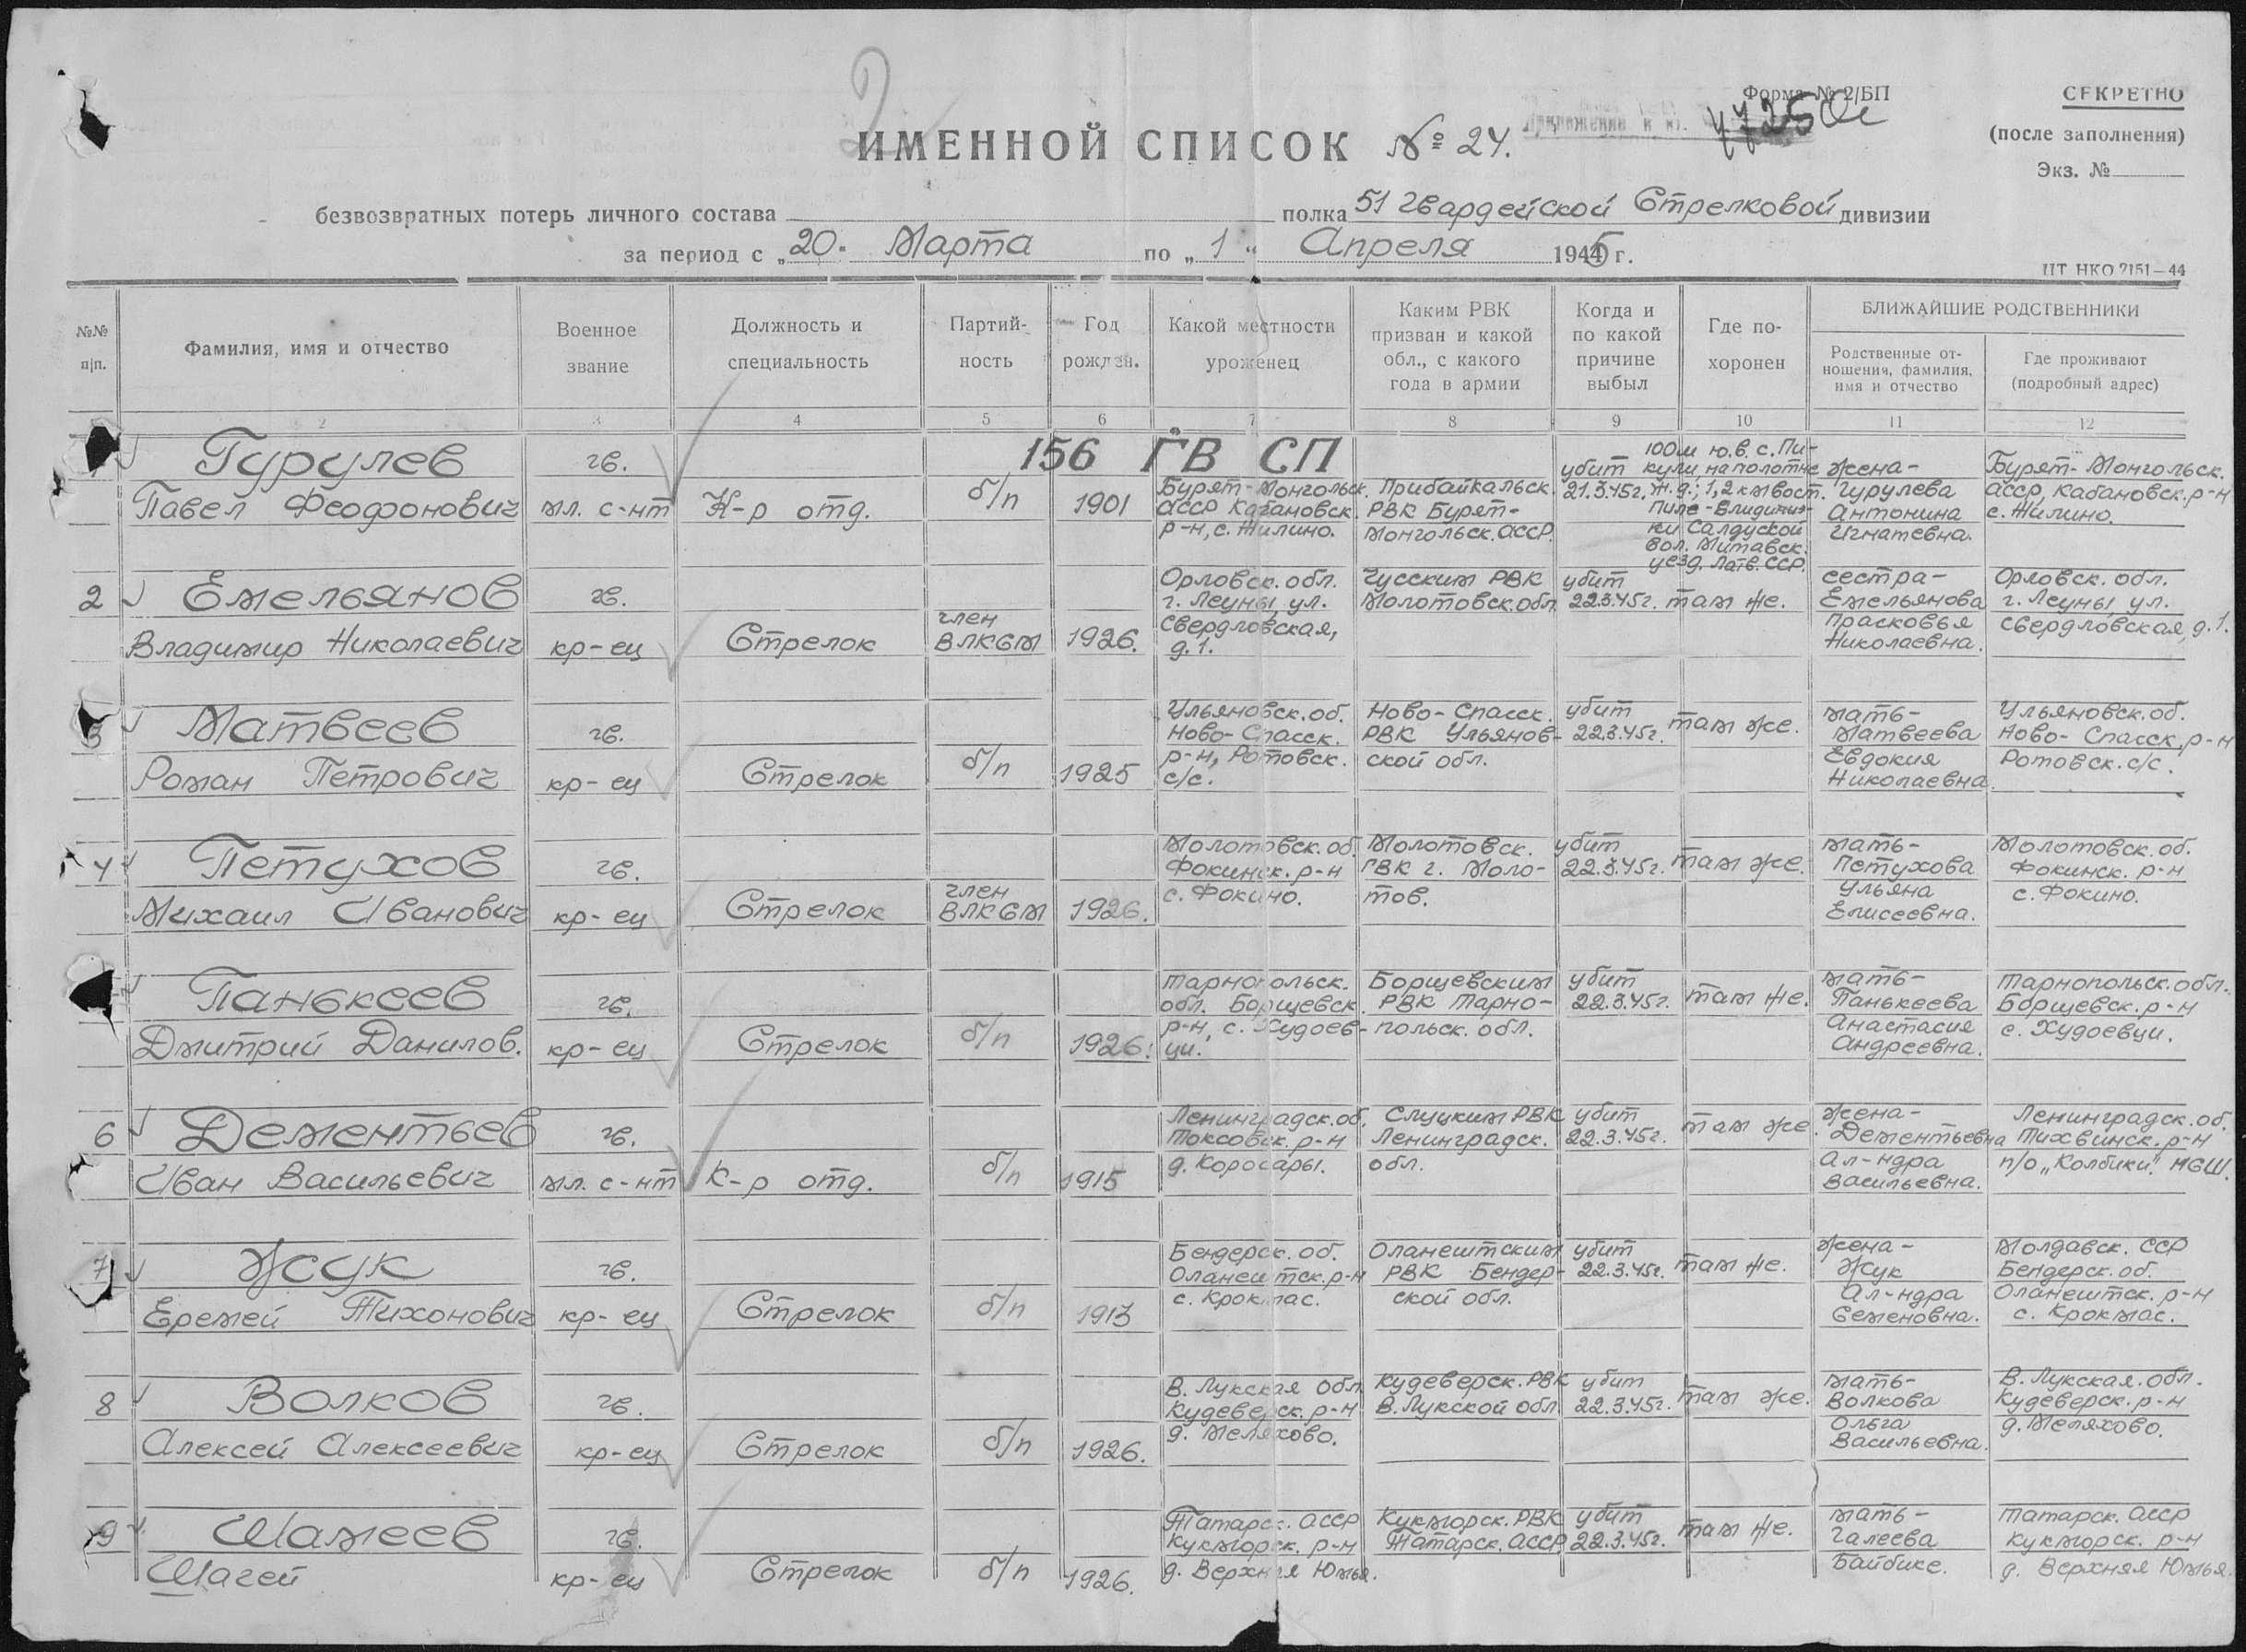 2
Форма № 2/БП
СЕКРЕТНО
(после заполнения)
Экз. №
ИМЕННОЙ СПИСОК № 24.
безвозвратных потерь личного состава полка 51 Гвардейской Стрелковой дивизии
за период с „20" Марта по „1" Апреля 1945 г.
ЦТ НКО 2151—44
№№ п/п.
Фамилия, имя и отчество
Военное звание
Должность и специальность
Партийность
Год рожден.
Какой местности уроженец
Каким РВК призван и какой обл., с какого года в армии
Когда и по какой причине выбыл
Где похоронен
БЛИЖАЙШИЕ РОДСТВЕННИКИ
Родственные отношения, фамилия, имя и отчество
Где проживают (подробный адрес)
2 3 4 5 6 7 8 9 10 11 12
156 ГВ СП
1 Гурулев Павел Феофонович
гв. мл. с-нт
К-р отд.
б/п
1901
Бурят-Монгольск. АССР Кабановск. р-н, с. Жилино.
Прибайкальск. РВК Бурят-Монгольск. АССР.
убит 21.3.45г.
100м ю.в. с. Пикули, на полотне ж.д.; 1,2 км вост. Салдуской вол. Митавск. уезд. Латв. ССР.
жена- Гурулева Антонина Игнатевна.
Бурят-Монгольск. АССР, Кабановск. р-н с. Жилино.
2 Емельянов Владимир Николаевич
гв. кр-ец
Стрелок
член ВЛКСМ
1926.
Орловск. обл. г. Леуны ул. Свердловская, д. 1.
Чусским РВК Молотовск. обл.
убит 22.3.45г.
там же.
сестра- Емельянова Прасковья Николаевна.
Орловск. обл. г. Леуны ул. Свердловская, д. 1.
3 Матвеев Роман Петрович
гв. кр-ец
Стрелок
б/п
1925
Ульяновск. об. Ново-Спасск. р-н, Ротовск. с/с.
Ново-Спасск. РВК Ульяновской обл.
убит 22.3.45г.
там же.
мать- Матвеева Евдокия Николаевна.
Ульяновск. об. Ново-Спасск. р-н Ротовск. с/с.
4 Петухов Михаил Иванович
гв. кр-ец
Стрелок
член ВЛКСМ
1926.
Молотовск. об. Фокинск. р-н с. Фокино.
Молотовск. ГВК г. Молотов.
убит 22.3.45г.
там же.
мать- Петухова Ульяна Елисеевна.
Молотовск. об. Фокинск. р-н с. Фокино.
Панькеев Дмитрий Данилов.
гв. кр-ец
Стрелок
б/п
1926.
Тарнопольск. обл. Борщевск. р-н, с. Худоевци.
Борщевским РВК Тарнопольск. обл.
убит 22.3.45г.
там же.
мать- Панькеева Анастасия Андреевна.
Тарнопольск. обл. Борщевск. р-н с. Худоевци.
6 Дементьев Иван Васильевич
гв. мл. с-нт
К-р отд.
б/п
1915
Ленинградск. об. Токсовск. р-н д. Коросары.
Слуцким РВК Ленинградск. обл.
убит 22.3.45г.
там же.
жена- Дементьевна Ал-ндра Васильевна.
Ленинградск. об. Тихвинск. р-н п/о „Колбики" НСШ.
7 Жук Еремей Тихонович
гв. кр-ец
Стрелок
б/п
1913
Бендерск. об. Оланештск. р-н с. Крокмас.
Оланештским РВК Бендерской обл.
убит 22.3.45г.
там же.
жена- Жук Ал-ндра Семеновна.
Молдавск. ССР Бендерск. об. Оланештск. р-н с. Крокмас.
8 Волков Алексей Алексеевич
гв. кр-ец
Стрелок
б/п
1926.
В. Лукская обл. Кудеверск. р-н д. Меляхово.
Кудеверск. РВК В. Лукской обл.
убит 22.3.45г.
там же.
мать- Волкова Ольга Васильевна.
В. Лукская. обл. Кудеверск. р-н д. Меляхово.
9 Шамеев Шагей
гв. кр-ец
Стрелок
б/п
1926.
Татарск. АССР Кукморск. р-н д. Верхняя Юмья.
Кукморск. РВК Татарск. АССР.
убит 22.3.45г.
там же.
мать- Галеева Байбике.
Татарск. АССР Кукморск. р-н д. Верхняя Юмья.